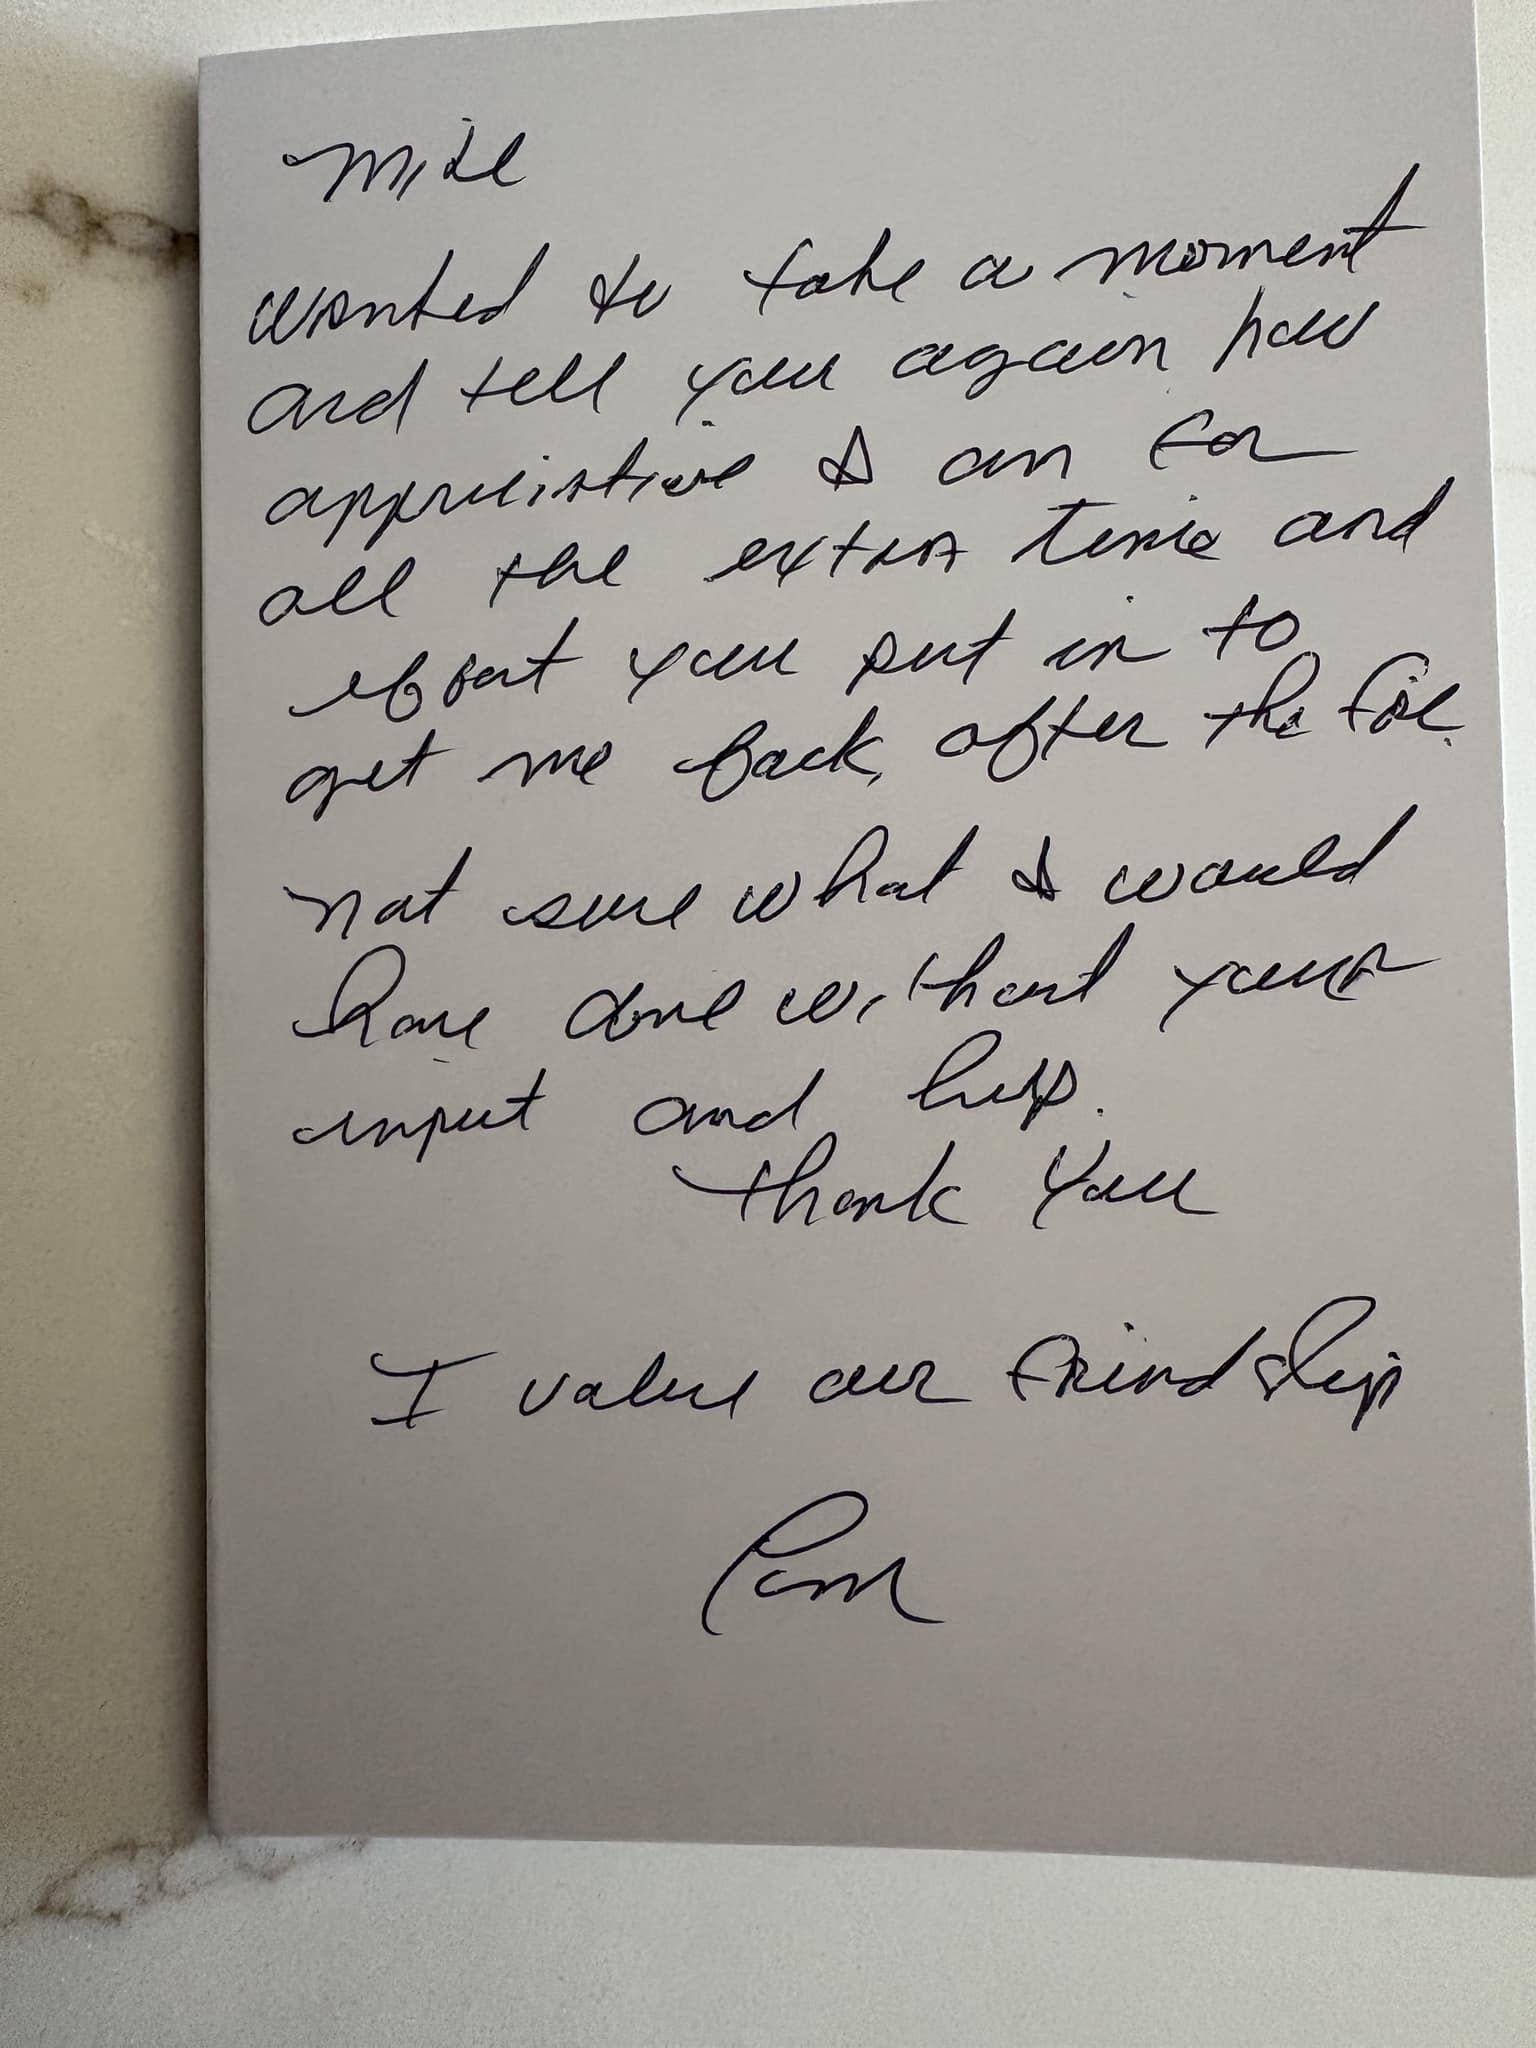 Mike
Wanted to take a moment
and tell you again how
appreciative I am for
all the extra time and
effort you put in to
get me back, after the fire.
Not sure what I would
have done without your
input and help.
Thank you
I value our friendship
Pam